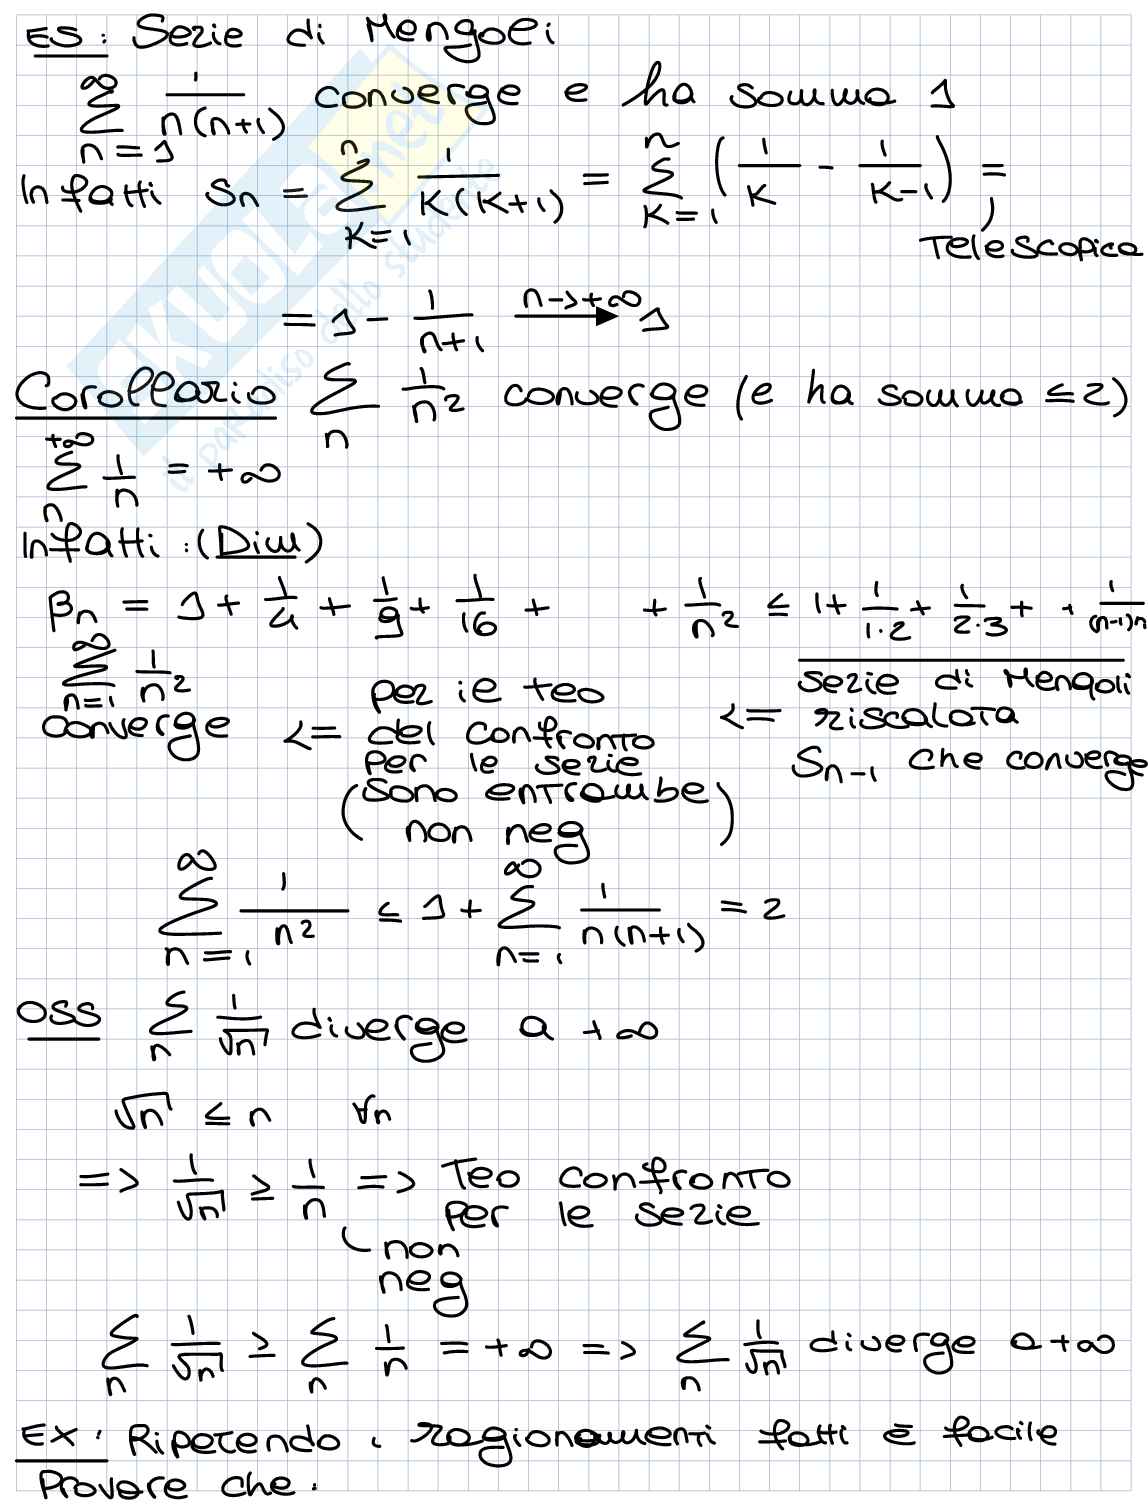 ES: Serie di Mengoli
∞∑n=1 1/n(n+1) converge e ha somma 1
Infatti Sn = n∑K=1 1/K(K+1) = n∑K=1 (1/K - 1/K-1) =
Telescopica
= 1 - 1/n+1 n->+∞ → 1
Corollario ∑n 1/n² converge (e ha somma ≤ 2)
+∞∑n 1/n = +∞
Infatti: (Dim)
βn = 1 + 1/4 + 1/9 + 1/16 + + 1/n² ≤ 1 + 1/1·2 + 1/2·3 + + 1/(n-1)n
∞∑n=1 1/n²
converge <= per il teo
del confronto
per le serie
(sono entrambe
non neg)
<= serie di Mengoli
riscalata
Sn-1 che converge
∞∑n=1 1/n² ≤ 1 + ∞∑n=1 1/n(n+1) = 2
OSS ∑n 1/√n diverge a +∞
√n ≤ n ∀n
=> 1/√n ≥ 1/n => Teo confronto
per le serie
non
neg
∑n 1/√n ≥ ∑n 1/n = +∞ => ∑n 1/√n diverge a +∞
EX: Ripetendo i ragionamenti fatti è facile
Provare che:
SKUOLA.net
il paradiso dello studente